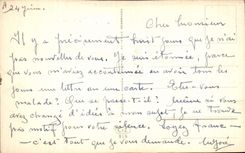 24 Juin.
Cher Monsieur
Il y a précisément huit jours que je n'ai
pas nouvelles de vous. Je suis étonnée, parce
que vous m'aviez accoutumée en avoir tous les
jours une lettre ou une carte. Etes-vous
malade? Que se passe-t-il? Même si vous
avez changé d'idées à mon sujet, je ne trouve
pas motif pour votre silence. Soyez franc
c'est tout que je vous demande.